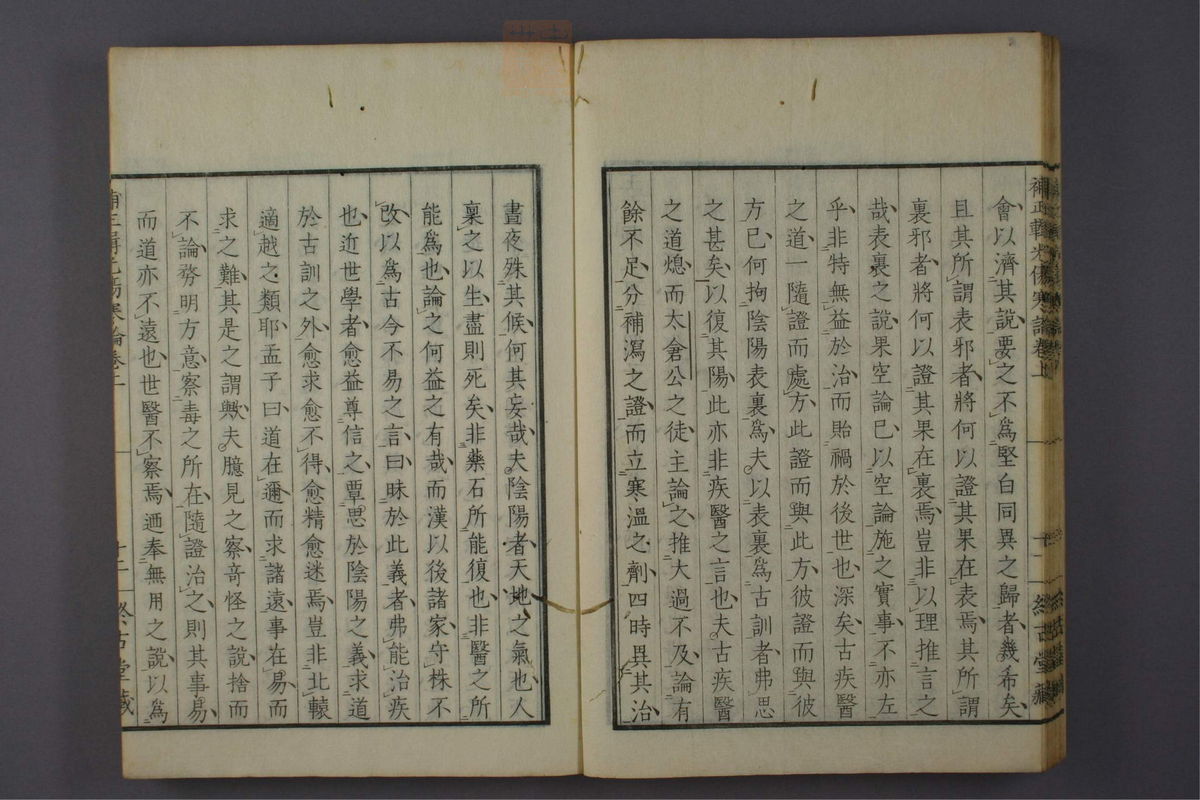 補正輯光傷寒論卷上 十二 終古堂藏
會以濟其說要之不爲堅白同異之歸者幾希矣
且其所謂表邪者將何以證其果在表焉其所謂
裏邪者將何以證其果在裏焉豈非以理推言之
哉表裏之說果空論已以空論施之實事不亦左
乎非特無益於治而貽禍於後世也深矣古疾醫
之道一隨證而處方此證而與此方彼證而與彼
方已何拘陰陽表裏爲夫以表裏爲古訓者弗思
之甚矣以復其陽此亦非疾醫之言也夫古疾醫
之道熄而太倉公之徒主論之推大過不及論有
餘不足分補瀉之證而立寒溫之劑四時異其治
晝夜殊其候何其妄哉夫陰陽者天地之氣也人
稟之以生盡則死矣非藥石所能復也非醫之所
能爲也論之何益之有哉而漢以後諸家守株不
改以爲古今不易之言曰昧於此義者弗能治疾
也近世學者愈益尊信之覃思於陰陽之義求道
於古訓之外愈求愈不得愈精愈迷焉豈非北轅
適越之類耶孟子曰道在邇而求諸遠事在易而
求之難其是之謂歟夫臆見之察奇怪之說捨而
不論務明方意察毒之所在隨證治之則其事易
而道亦不遠也世醫不察焉迺奉無用之說以爲